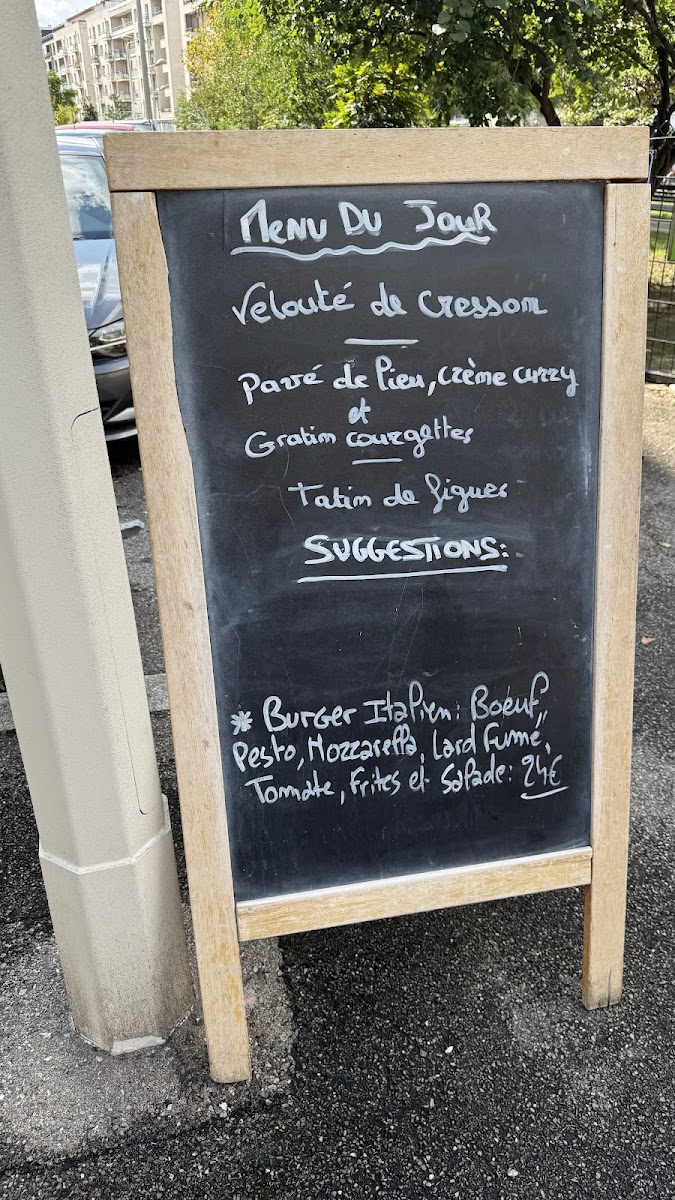 Menu Du Jour
Velouté de cresson
Pavé de lieu, crème curry
et
Gratin courgettes
Tatin de figues
SUGGESTIONS:
* Burger Italien: Boeuf,
Pesto, Mozzarella, Lard Fumé,
Tomate, Frites et Salade: 24€